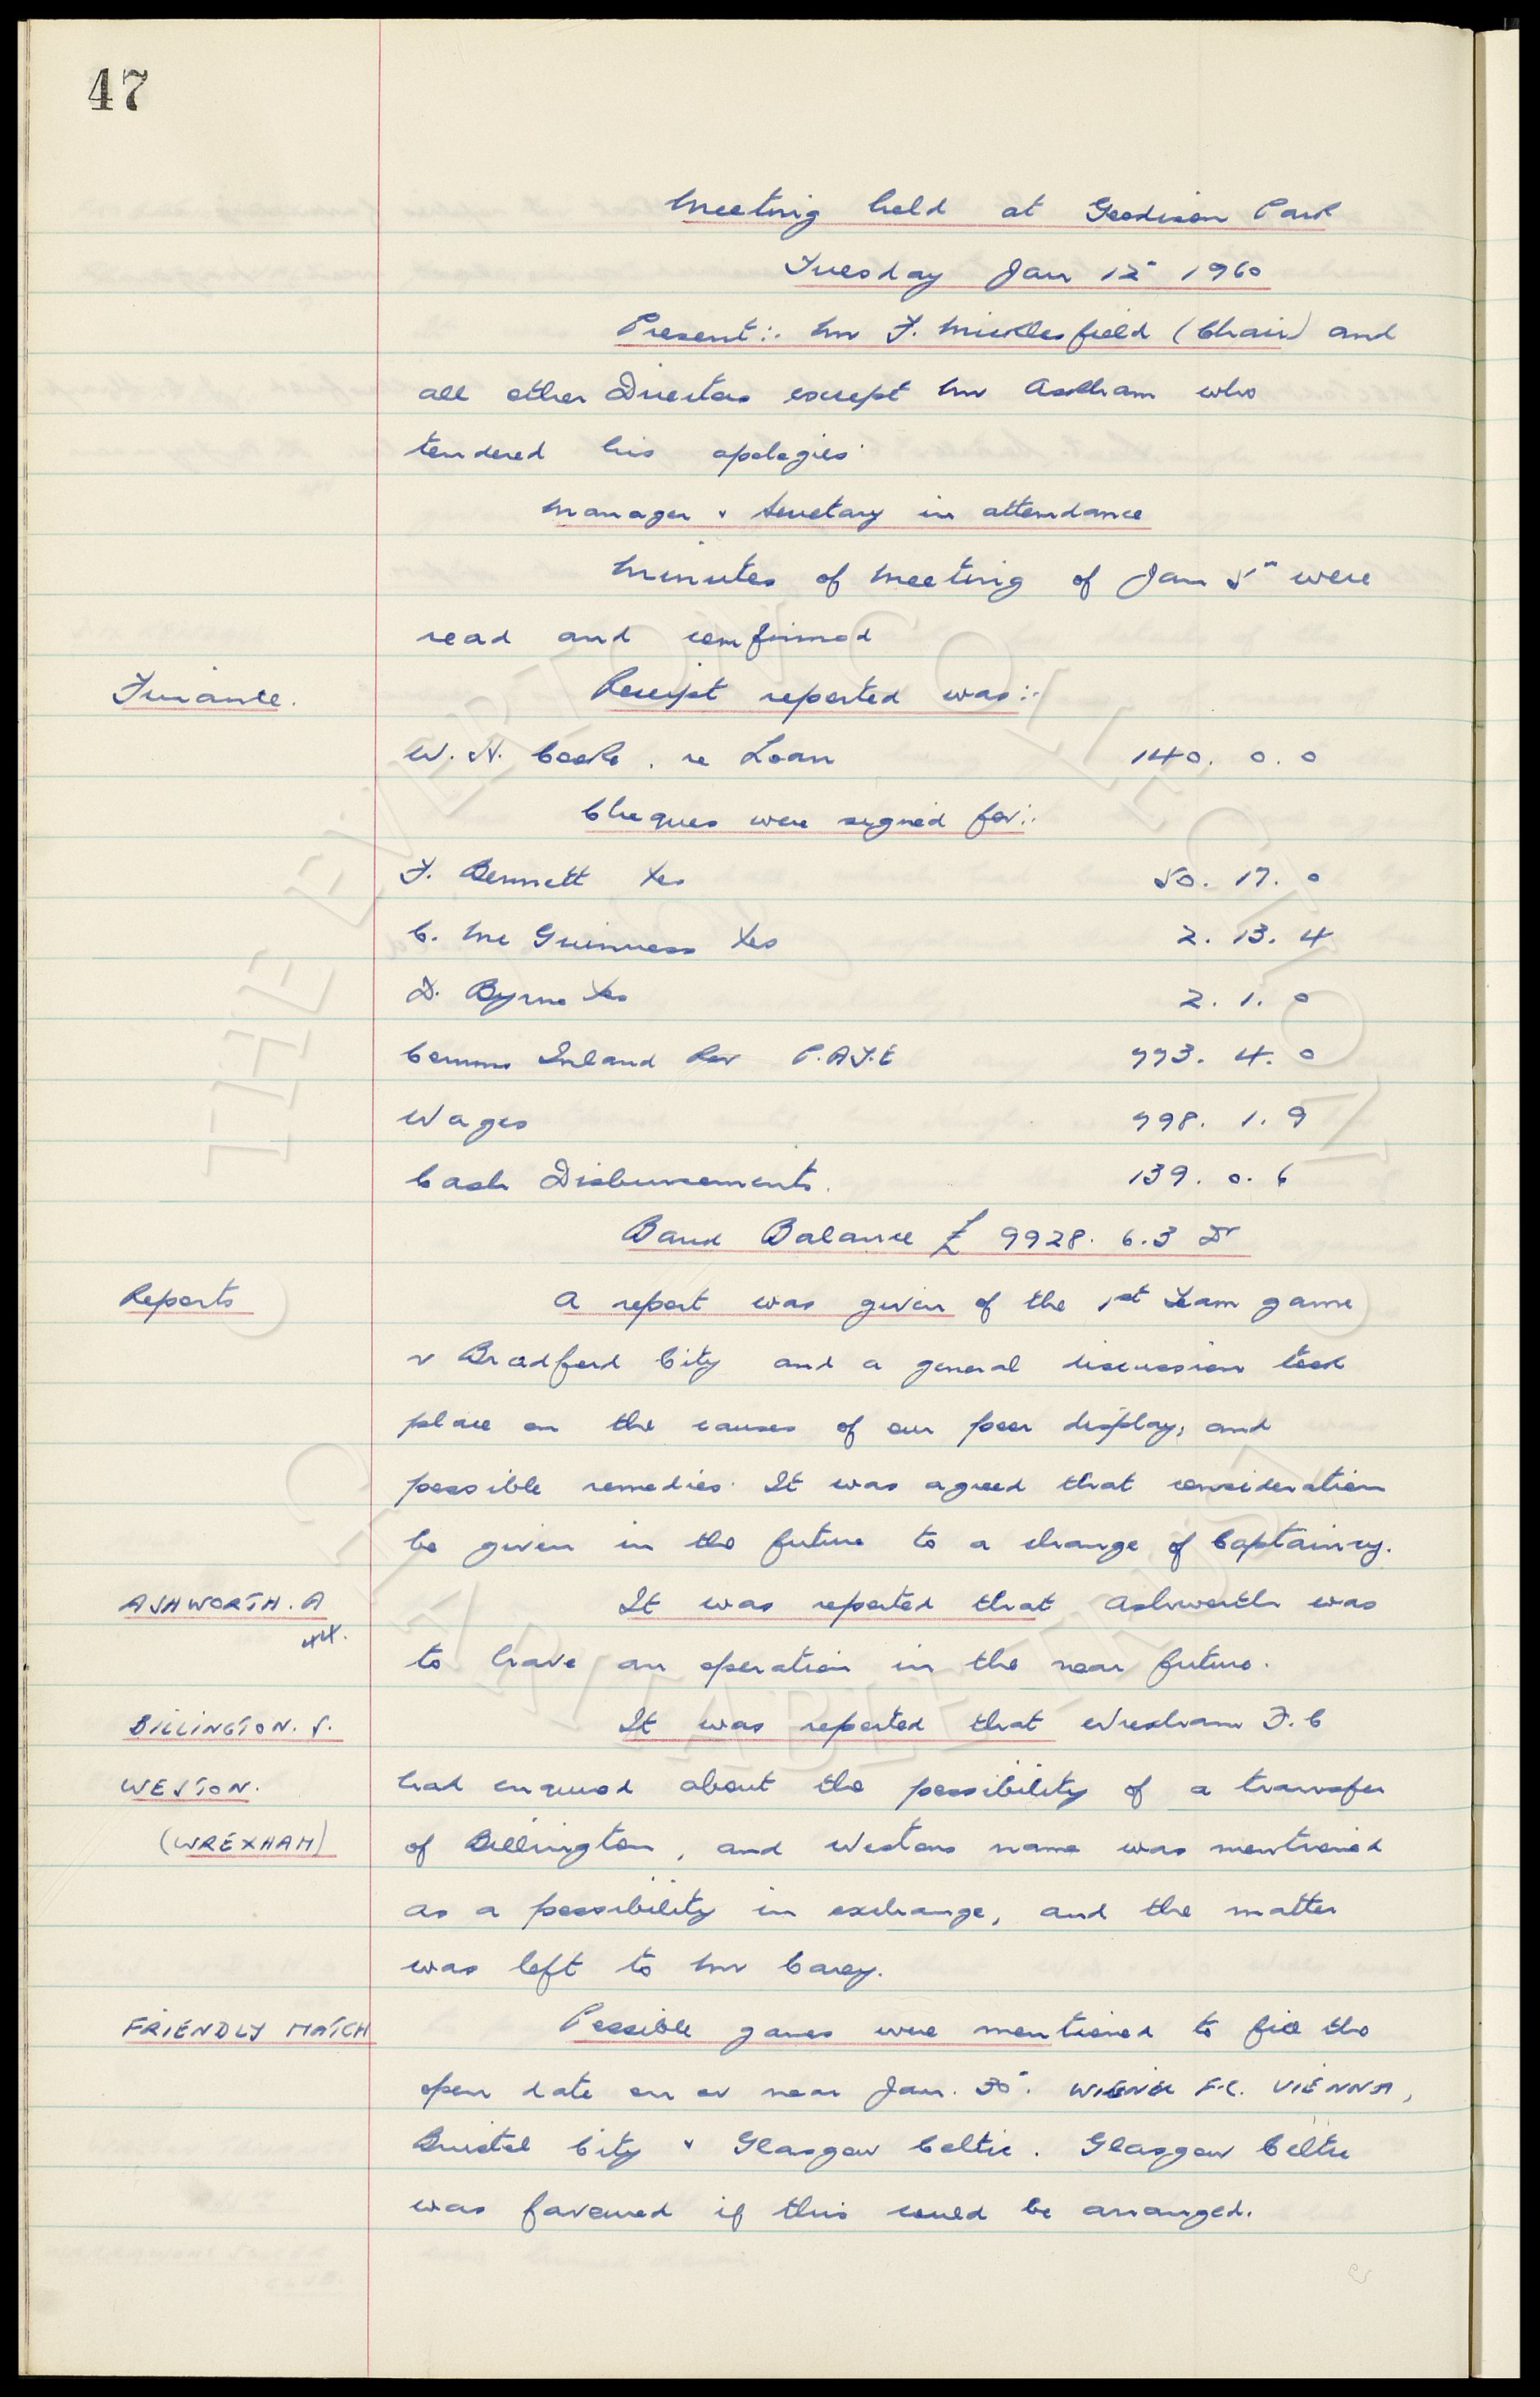 47
Meeting held at Goodison Park
Tuesday Jan 12" 1960
Present:- Mr F. Micklesfield (Chair) and
all other Directors except Mr Askham who
tendered his apologies
Manager & Secretary in attendance
Minutes of Meeting of Jan 5" were
read and confirmed
Finance. Receipt reported was:-
W. H. Cooke, re Loan 140. 0. 0
Cheques were signed for:-
F. Bennett Xes 50. 17. 0
C. McGuinness Xes 2. 13. 4
D. Byrne Xes 2. 1. 0
Comms Inland Rev P.A.Y.E 993. 4. 0
Wages 998. 1. 9
Cash Disbursements. 139. 0. 6
Bank Balance £ 9928. 6.3 Dr
Reports A report was given of the 1st Team game
v Bradford City and a general discussion took
place on the causes of our poor display, and
possible remedies. It was agreed that consideration
be given in the future to a change of Captaincy.
ASHWORTH. A It was reported that Ashworth was
to have an operation in the near future.
BILLINGTON. S. It was reported that Wrexham F.C
WESTON. had enquired about the possibility of a transfer
(WREXHAM) of Billington, and Westons name was mentioned
as a possibility in exchange, and the matter
was left to Mr Carey.
FRIENDLY MATCH Possible games were mentioned to fill the
open date on or near Jan. 30". F.C. VIENNA,
Bristol City & Glasgow Celtic. Glasgow Celtic
was favoured if this could be arranged.
THE EVERTON COLLECTION
CHARITABLE TRUST